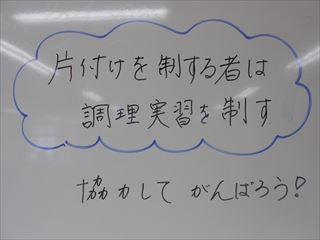 片付けを制する者は
調理実習を制す
協力して がんばろう!